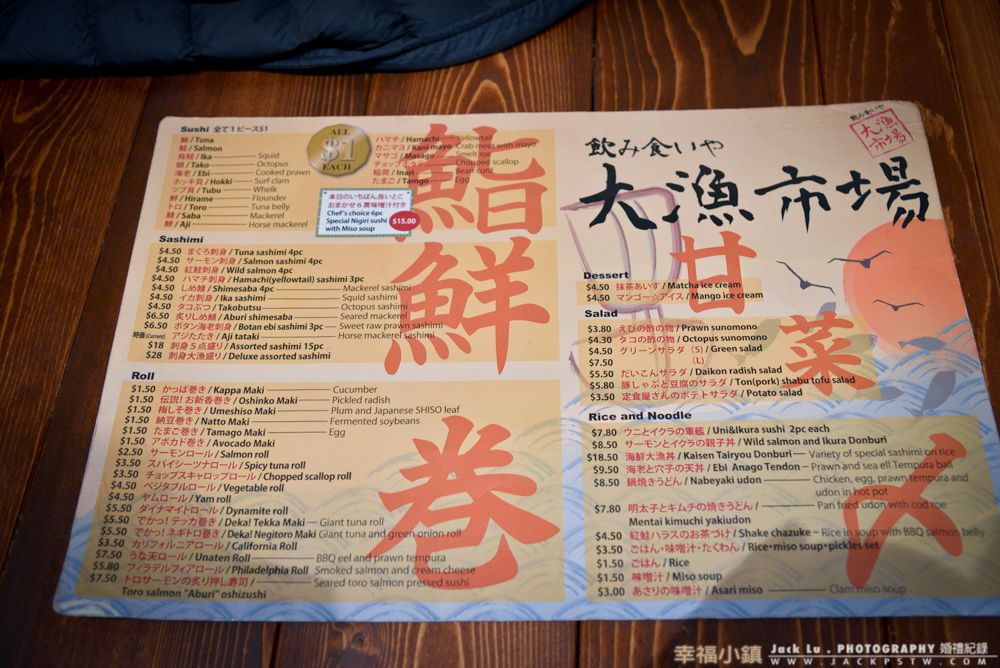 Sushi 全て1ピース$1
鮪 / Tuna
鮭 / Salmon
烏賊 / Ika Squid
蛸 / Tako Octopus
海老 / Ebi Cooked prawn
ホッキ貝 / Hokki Surf clam
ツブ貝 / Tubu Whelk
鮃 / Hirame Flounder
トロ / Toro Tuna belly
鯖 / Saba Mackerel
鯵 / Aji Horse mackerel
ALL
$1
EACH
ハマチ / Hamachi Yellowtail
カニマヨ / Kani mayo Crab meet with mayo
マサゴ / Masago Smelt roe
Chopped scallop
稲荷 / Inari Bean curd
たまご / Tamago Egg
本日のいちばん良いとこ
おまかせ6貫味噌汁付き
Chef's choice 6pc
Special Nigiri sushi
with Miso soup
$15.00
鮨
鮮
巻
Sashimi
$4.50 まぐろ刺身 / Tuna sashimi 4pc
$4.50 サーモン刺身 / Salmon sashimi 4pc
$4.50 紅鮭刺身 / Wild salmon 4pc
$4.50 ハマチ刺身 / Hamachi(yellowtail) sashimi 3pc
$4.50 しめ鯖 / Shimesaba 4pc Mackerel sashimi
$4.50 イカ刺身 / Ika sashimi Squid sashimi
$4.50 タコぶつ / Takobutsu Octopus sashimi
$6.50 炙りしめ鯖 / Aburi shimesaba Seared mackerel
$6.50 ボタン海老刺身 / Botan ebi sashimi 3pc Sweet raw prawn sashimi
時価(Current) アジたたき / Aji tataki Horse mackerel sashimi
$18 刺身5点盛り / Assorted sashimi 15pc
$28 刺身大漁盛り / Deluxe assorted sashimi
Roll
$1.50 かっぱ巻き / Kappa Maki Cucumber
$1.50 伝説! お新香巻き / Oshinko Maki Pickled radish
$1.50 梅しそ巻き / Umeshiso Maki Plum and Japanese SHISO leaf
$1.50 納豆巻き / Natto Maki Fermented soybeans
$1.50 たまご巻き / Tamago Maki Egg
$1.50 アボカド巻き / Avocado Maki
$2.50 サーモンロール / Salmon roll
$3.50 スパイシーツナロール / Spicy tuna roll
$3.50 チョップスキャロップロール / Chopped scallop roll
$4.50 ベジタブルロール / Vegetable roll
$4.50 ヤムロール / Yam roll
$5.50 ダイナマイトロール / Dynamite roll
$5.50 でかっ! テッカ巻き / Deka! Tekka Maki Giant tuna roll
$5.50 でかっ! ネギトロ巻き / Deka! Negitoro Maki Giant tuna and green onion roll
$3.50 カリフォルニアロール / California Roll
$7.50 うな天ロール / Unaten Roll BBQ eel and prawn tempura
$5.80 フィラデルフィアロール / Philadelphia Roll Smoked salmon and cream cheese
$7.50 トロサーモンの炙り押し寿司 / Seared toro salmon pressed sushi
Toro salmon "Aburi" oshizushi
飲み食いや
大漁市場
飲み食いや
大漁
市場
甘
菜
〆
Dessert
$4.50 抹茶あいす / Matcha ice cream
$4.50 マンゴー☆アイス / Mango ice cream
Salad
$3.80 えびの酢の物 / Prawn sunomono
$4.30 タコの酢の物 / Octopus sunomono
$4.50 グリーンサラダ (S) / Green salad
$7.50 (L)
$5.50 だいこんサラダ / Daikon radish salad
$5.80 豚しゃぶと豆腐のサラダ / Ton(pork) shabu tofu salad
$3.50 定食屋さんのポテトサラダ / Potato salad
Rice and Noodle
$7.80 ウニとイクラの軍艦 / Uni&Ikura sushi 2pc each
$8.50 サーモンとイクラの親子丼 / Wild salmon and Ikura Donburi
$18.50 海鮮大漁丼 / Kaisen Tairyou Donburi Variety of special sashimi on rice
$9.50 海老と穴子の天丼 / Ebi Anago Tendon Prawn and sea ell Tempura ball
$8.50 鍋焼きうどん / Nabeyaki udon Chicken, egg, prawn tempura and
udon in hot pot
$7.80 明太子とキムチの焼きうどん / Pan fried udon with cod roe
Mentai kimuchi yakiudon
$4.50 紅鮭ハラスのお茶づけ / Shake chazuke Rice in soup with BBQ salmon belly
$3.50 ごはん・味噌汁・たくわん / Rice・miso soup・pickles set
$1.50 ごはん / Rice
$1.50 味噌汁 / Miso soup
$3.00 あさりの味噌汁 / Asari miso Clam miso soup
幸福小鎮 Jack Lu . PHOTOGRAPHY 婚禮紀錄
WWW.JACKPSTW.COM